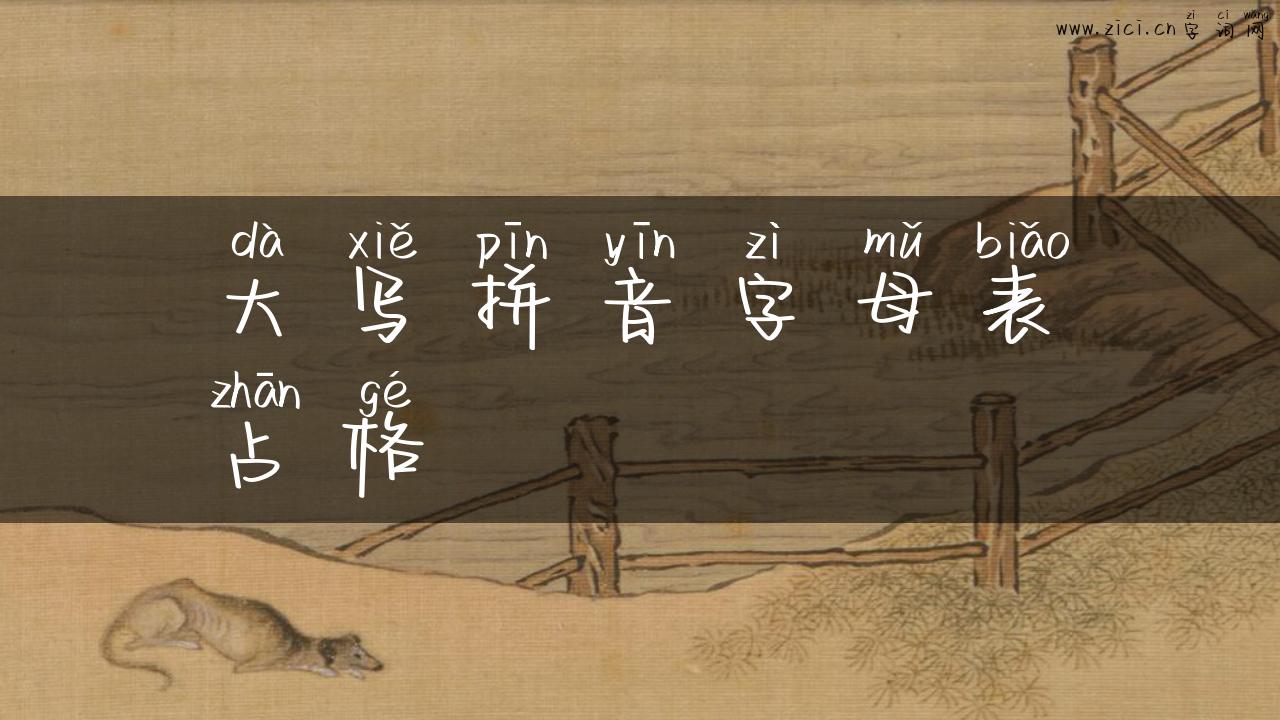 zi ci wang
www.zici.cn 字词网
dà xiě pīn yīn zì mǔ biǎo
大写拼音字母表
zhān gé
占格